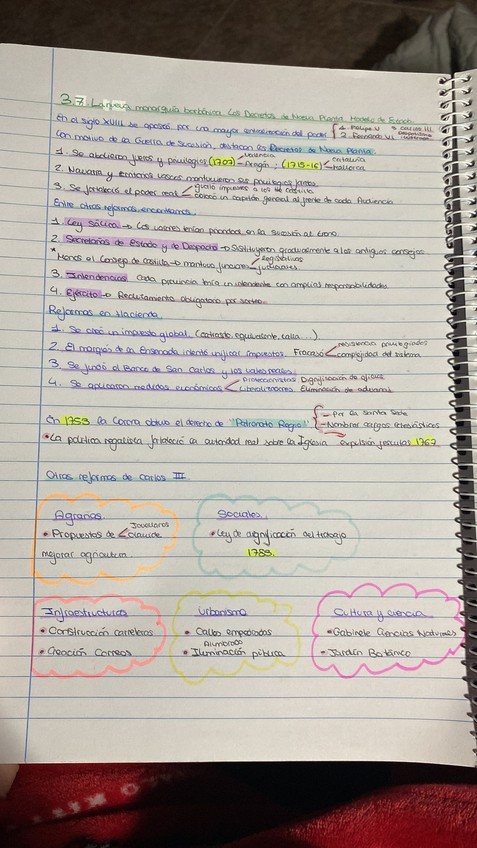 3.7. La nueva monarquía borbónica. Los Decretos de Nueva Planta. Modelo de Estado.
En el siglo XVIII se apostó por una mayor centralización del poder 1. Felipe V 3. Carlos III
2. Fernando VI
Con motivo de la Guerra de Sucesión, destacan los Decretos de Nueva Planta:
1. Se abolieron fueros y privilegios (1707) Valencia Aragón; (1715-16) Cataluña Mallorca
2. Navarra y territorios vascos mantuvieron sus privilegios forales.
3. Se fortaleció el poder real igualó impuestos a los de Castilla
colocó un capitán general al frente de cada Audiencia.
Entre otras reformas, encontramos:
1. Ley Sálica → Los varones tenían prioridad en la sucesión al trono.
2. Secretarías de Estado y de Despacho → Sustituyeron gradualmente a los antiguos consejos
* Menos el Consejo de Castilla → mantuvo funciones legislativas judiciales.
3. Intendencias Cada provincia tenía un intendente con amplias responsabilidades
4. Ejército → Reclutamiento obligatorio por sorteo.
Reformas en Hacienda
1. Se creó un impuesto global (catastro, equivalente, talla ...)
2. El marqués de la Ensenada intentó unificar impuestos. Fracasó resistencia privilegiados
complejidad del sistema
3. Se fundó el Banco de San Carlos y los vales reales.
4. Se aplicaron medidas económicas Proteccionistas Dignificación de oficios
Liberalizadoras Eliminación de aduanas
En 1753 la Corona obtuvo el derecho de "Patronato Regio" - Por la Santa Sede
- Nombrar cargos eclesiásticos
• La política regalista fortaleció la autoridad real sobre la Iglesia expulsión jesuitas 1767.
Otras reformas de Carlos III
Agrarias
• Propuestas de Jovellanos
mejorar agricultura.
Sociales
• Ley de dignificación del trabajo
1783.
Infraestructuras
• Construcción carreteras
• Creación Correos
Urbanismo
• Calles empedradas
Alumbrado
• Iluminación pública
Cultura y ciencia
• Gabinete Ciencias Naturales
• Jardín Botánico